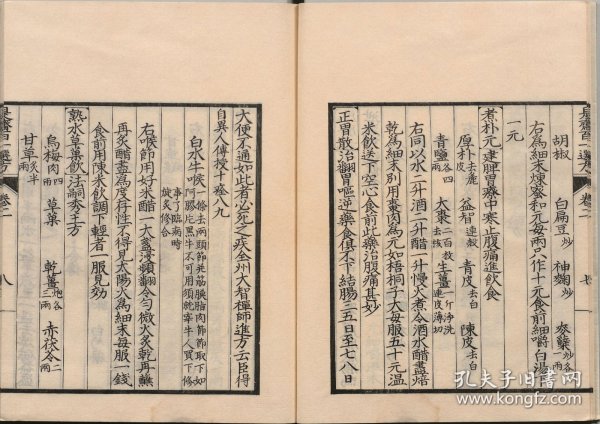 胡椒 白扁豆炒 神麴炒 麥糵炒各一兩
右為細末煉蜜和元每兩只作十元食前細嚼白湯下
一元
煮朴元建脾胃療中寒止腹痛進飲食
厚朴去皮 益智去殼 青皮去白 陳皮去白
青鹽各四兩 大棗二百枚去核 生薑一斤淨洗連皮薄切
右同以水二升酒二升醋一升慢火煮令酒水醋盡焙
乾為細末別用棗肉為元如梧桐子大每服五十元溫
米飲送下空心食前此藥治腹痛甚妙
正胃散治翻胃嘔逆藥食俱不下結腸三五日至七八日
大便不通如此者必死之疾全州大智禪師進方云臣得
自異人傳授十痊八九
白水牛喉一條去兩頭節并筋膜脂肉節節取下如阿膠片黑牛不可用須就宰牛人買下修事了臨病時旋炙修合
右喉節用好米醋一大盞浸頻翻令勻微火炙乾再蘸
再炙醋盡為度存性不得見太陽火為細末每服一錢
食前用陳米飲調下輕者一服見効
熟水草菓飲法嗣秀王方
烏梅肉四兩 草菓 乾薑炮各三兩 赤茯苓二兩
甘草炙半兩
是齋百一選方 卷二 七
是齋百一選方 卷二 八
孔夫子旧书网
www.kongfz.com